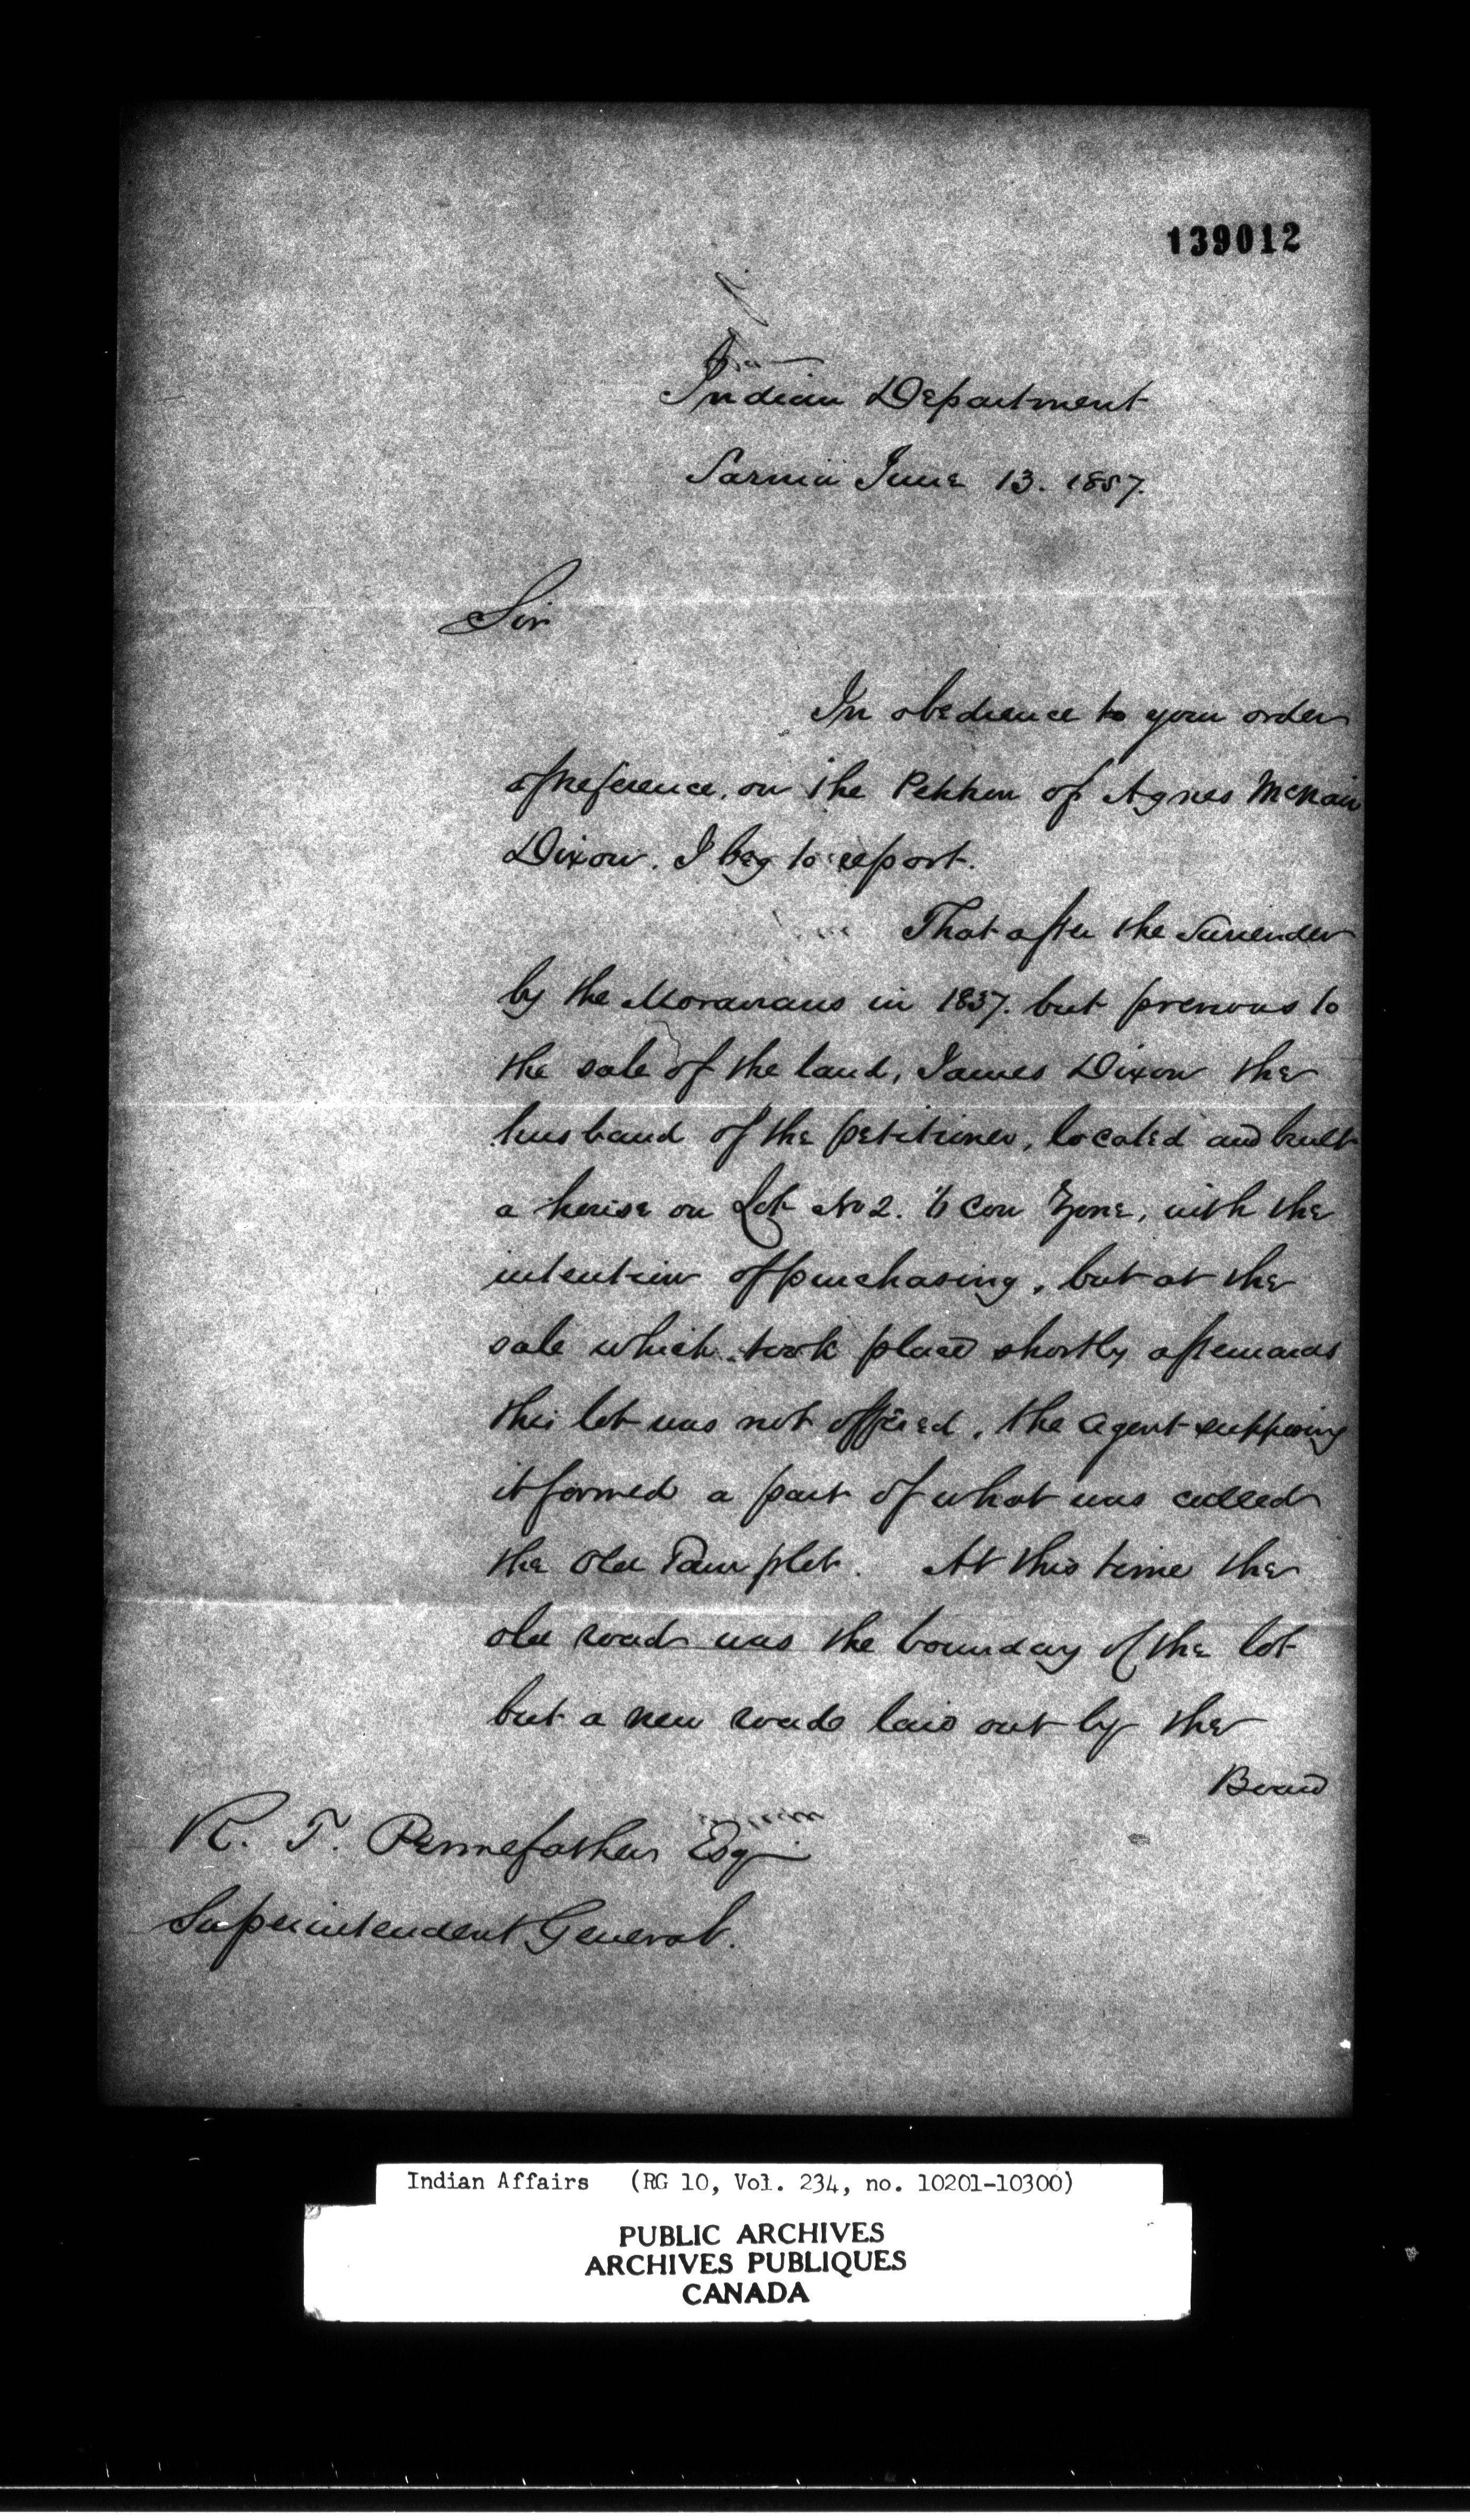 139012
Indian Department
Sarnia June 13. 1857.
Sir
In obedience to your order
of reference, on the Petition of Agnes McNair
Dixon. I beg to report.
That after the Surrender
by the Moravians in 1837. but previous to
the sale of the land, James Dixon the
husband of the petitioner, located and built
a house on Lot No 2. 6 Con Zone, with the
intention of purchasing, but at the
sale which took place shortly afterwards
this lot was not offered, the agent supposing
it formed a part of what was called
the Old Town plot. At this time the
old road was the boundary of the lot
but a new road laid out by the
Board
R. T. Pennefather Esqr
Superintendent General.
Indian Affairs (RG 10, Vol. 234, no. 10201-10300)
PUBLIC ARCHIVES
ARCHIVES PUBLIQUES
CANADA